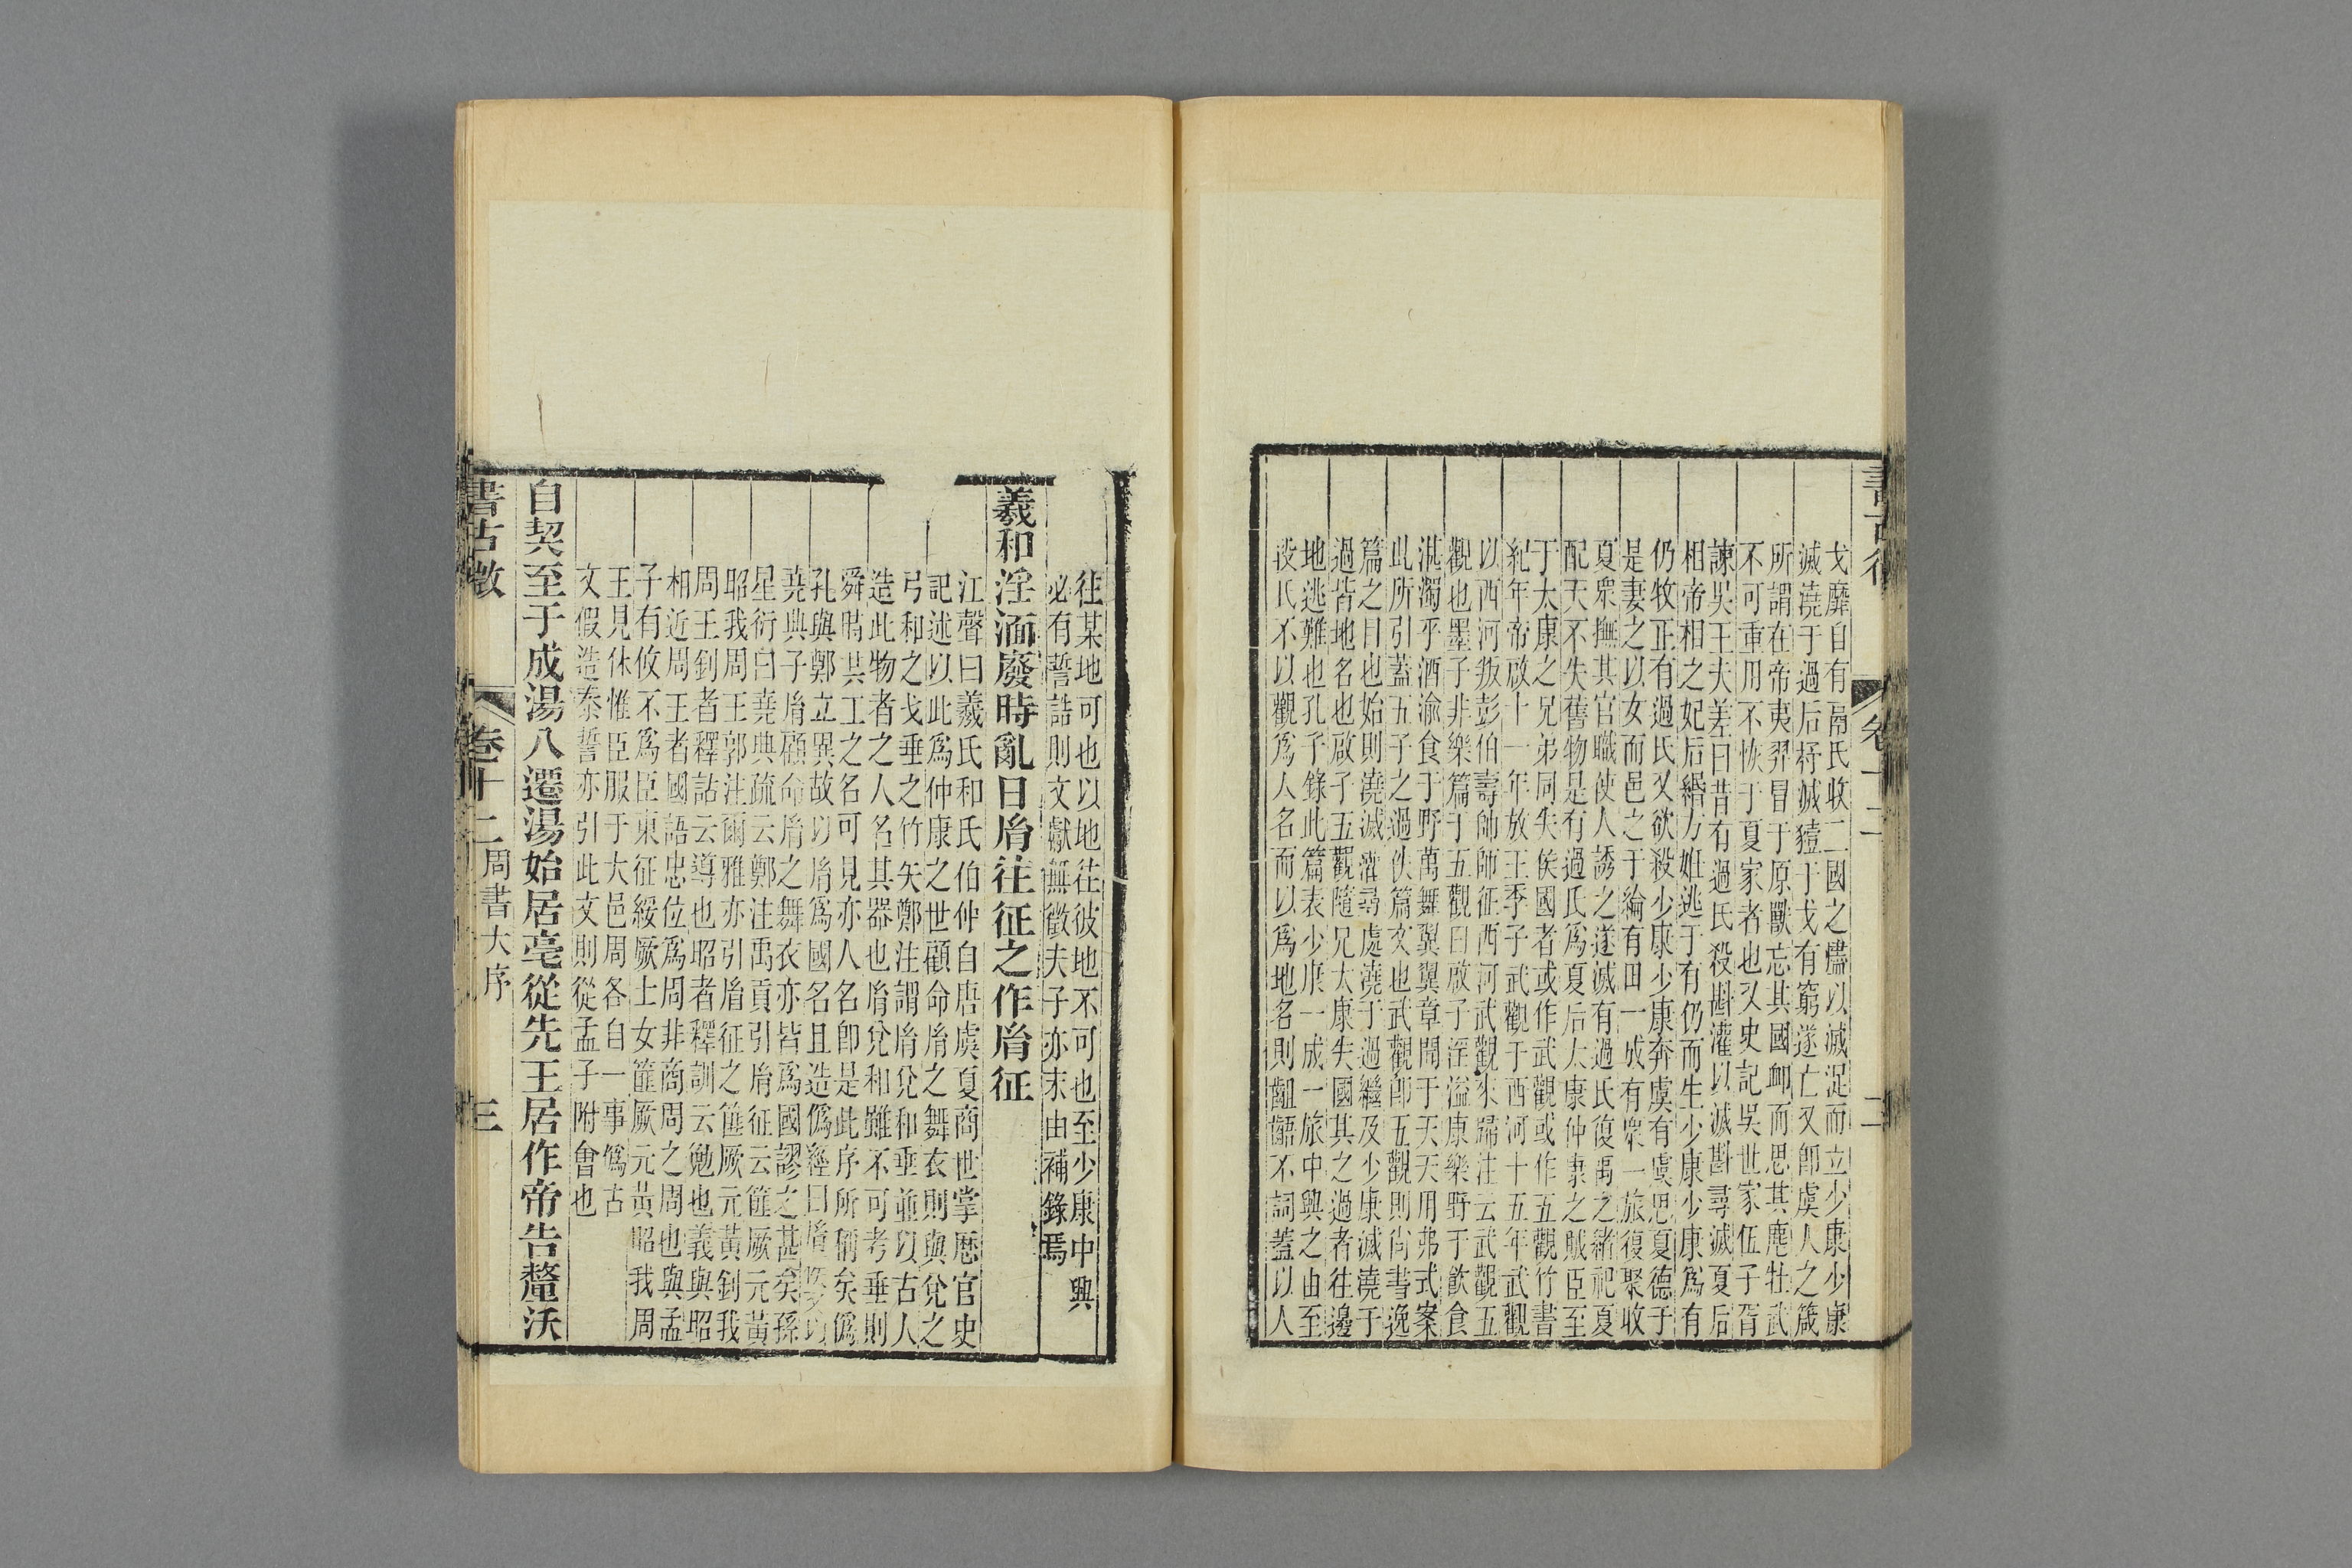 戈靡自有鬲氏收二國之燼以滅浞而立少康少康
滅澆于過后杼滅豷于戈有窮遂亡又卽虞人之箴
所謂在帝夷羿冒于原獸忘其國卹而思其麀牡武
不可重用不恢于夏家者也又史記吳世家伍子胥
諫吳王夫差曰昔有過氏殺斟灌以滅斟尋滅夏后
相帝相之妃后緡方娠逃于有仍而生少康少康爲有
仍牧正有過氏又欲殺少康少康奔虞有虞思夏德于
是妻之以女而邑之于綸有田一成有衆一旅復聚收
夏衆撫其官職使人誘之遂滅有過氏復禹之緒祀夏
配天不失舊物是有過氏爲夏后太康仲康之賊臣至
于太康之兄弟同失侯國者或作武觀或作五觀竹書
紀年帝啟十一年放王季子武觀于西河十五年武觀
以西河叛彭伯壽帥師征西河武觀來歸注云武觀五
觀也墨子非樂篇于五觀曰啟子淫溢康樂野于飲食
湛濁乎酒渝食于野萬舞翼翼章聞于天天用弗式案
此所引蓋五子之過佚篇文也武觀卽五觀則尙書逸
篇之目也始則澆滅灌尋處澆于過繼及少康滅澆于
過皆地名也啟子五觀隨兄太康失國其之過者往邊
地逃難也孔子錄此篇表少康一成一旅中興之由至
段氏不以觀爲人名而以爲地名則齟齬不詞蓋以人
往某地可也以地往彼地不可也至少康中興
必有誓誥則文獻無徵夫子亦末由補錄焉
羲和淫湎廢時亂日㣧往征之作㣧征
江聲曰羲氏和氏伯仲自唐虞夏商世掌厯官史
記述以此爲仲康之世顧命㣧之舞衣則與兌之
弓和之戈垂之竹矢鄭注謂㣧兌和垂並以古人
造此物者之人名其器也㣧兌和雖不可考垂則
舜時共工之名可見亦人名卽是此序所稱矣僞
孔與鄭立異故以㣧爲國名且造僞經曰㣧
堯典子㣧顧命㣧之舞衣亦皆爲國謬之甚矣孫
星衍曰堯典疏云鄭注禹貢引㣧征云篚厥元黃
昭我周王郭注爾雅亦引㣧征之篚厥元黃釗我
周王釗者釋詁云導也昭者釋訓云勉也義與昭
相近周王者國語忠位爲周非商周之周也與孟
子有攸不爲臣東征綏厥士女篚厥元黃昭我周
王見休惟臣服于大邑周各自一事僞古
文假造泰誓亦引此文則從孟子附會也
自契至于成湯八遷湯始居亳從先王居作帝告釐沃
書古微
卷十二
周書大序
三